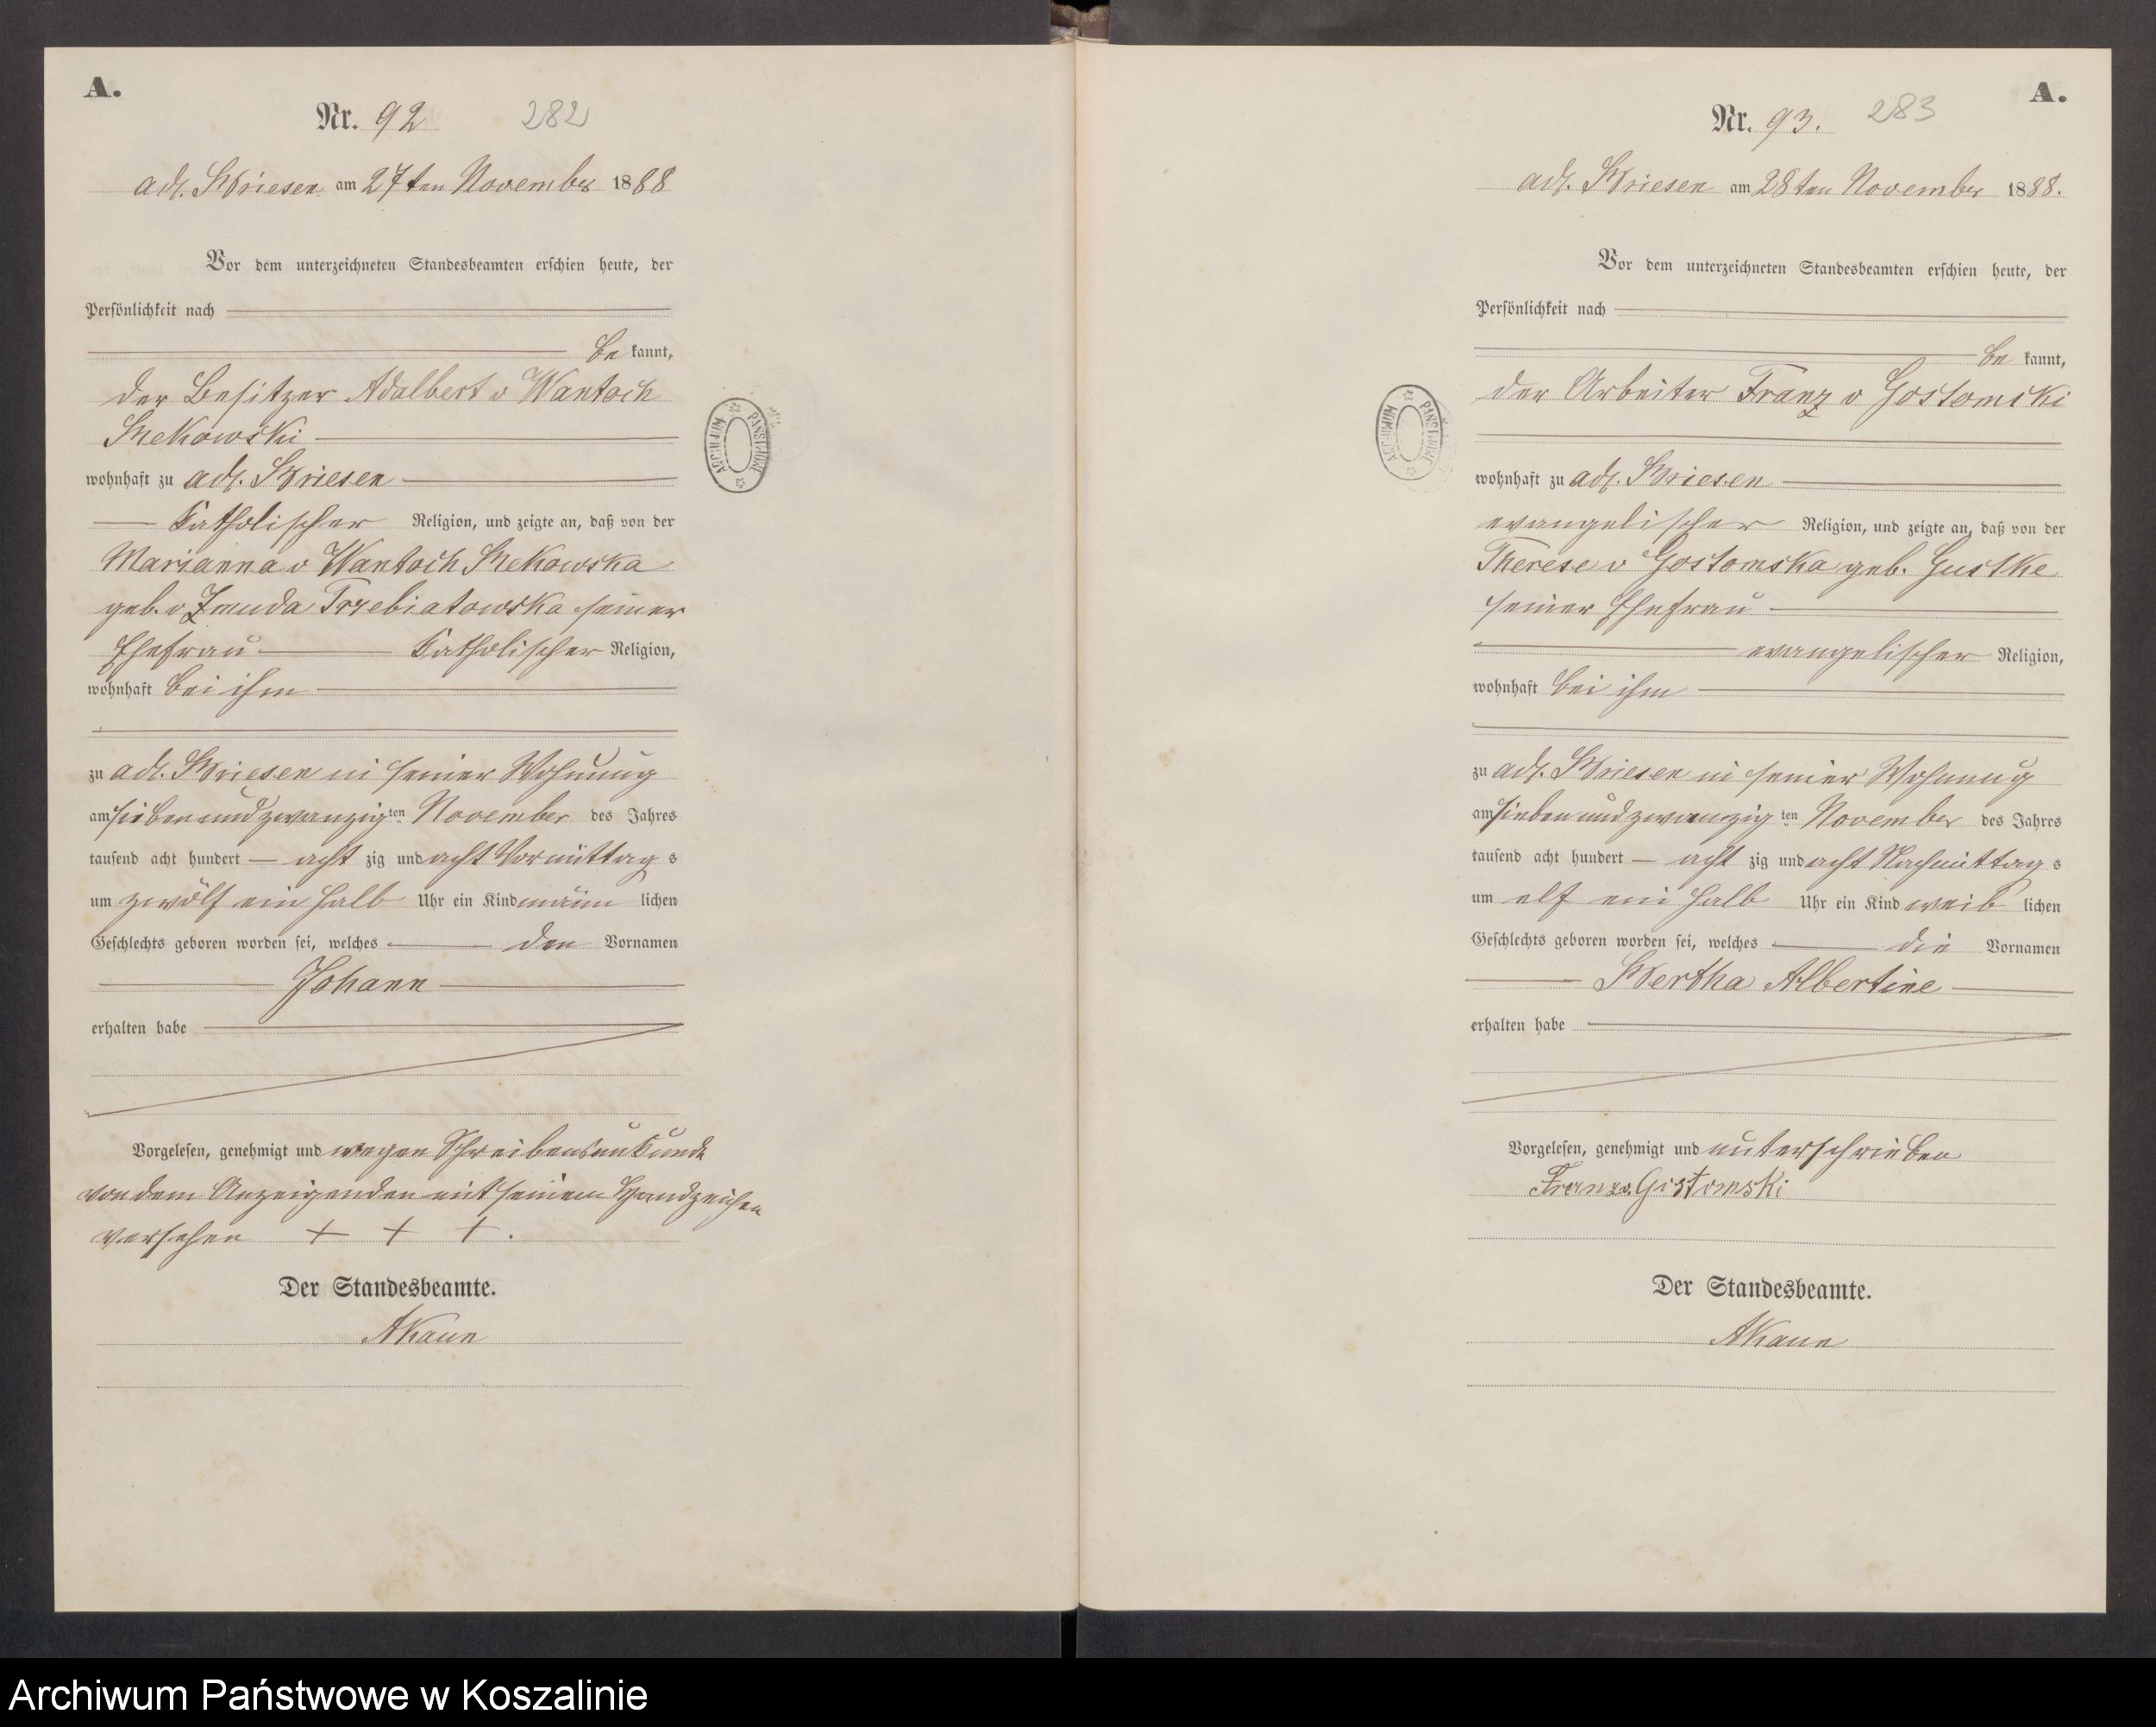 A.
Nr. 92 282
adl. Briesen am 27ten November 1888
Vor dem unterzeichneten Standesbeamten erschien heute, der
Persönlichkeit nach
be kannt,
der Besitzer Adalbert v Wantoch
Rekowski
wohnhaft zu adl. Briesen
katholischer Religion, und zeigte an, daß von der
Marianna v Wantoch Rekowska
geb. v Zmuda Trzebiatowska seiner
Ehefrau katholischer Religion,
wohnhaft bei ihm
zu adl. Briesen in seiner Wohnung
am sieben und zwanzig ten November des Jahres
tausend acht hundert acht zig und acht Vormittag s
um zwölf ein halb Uhr ein Kind männ lichen
Geschlechts geboren worden sei, welches den Vornamen
Johann
erhalten habe
Vorgelesen, genehmigt und wegen Schreibensunkunde
von dem Anzeigenden mit seinem Handzeichen
versehen + + + .
Der Standesbeamte.
AKaun
ARCHIWUM PAŃSTWOWE
A.
Nr. 93. 283
adl. Briesen am 28ten November 1888.
Vor dem unterzeichneten Standesbeamten erschien heute, der
Persönlichkeit nach
be kannt,
der Arbeiter Franz v Gostomski
wohnhaft zu adl. Briesen
evangelischer Religion, und zeigte an, daß von der
Therese v Gostomska geb. Gustke
seiner Ehefrau
evangelischer Religion,
wohnhaft bei ihm
zu adl. Briesen in seiner Wohnung
am sieben und zwanzig ten November des Jahres
tausend acht hundert acht zig und acht Nachmittag s
um elf ein halb Uhr ein Kind weib lichen
Geschlechts geboren worden sei, welches die Vornamen
Bertha Albertine
erhalten habe
Vorgelesen, genehmigt und unterschrieben
Franz v. Gostomski
Der Standesbeamte.
AKaun
ARCHIWUM PAŃSTWOWE
Archiwum Państwowe w Koszalinie